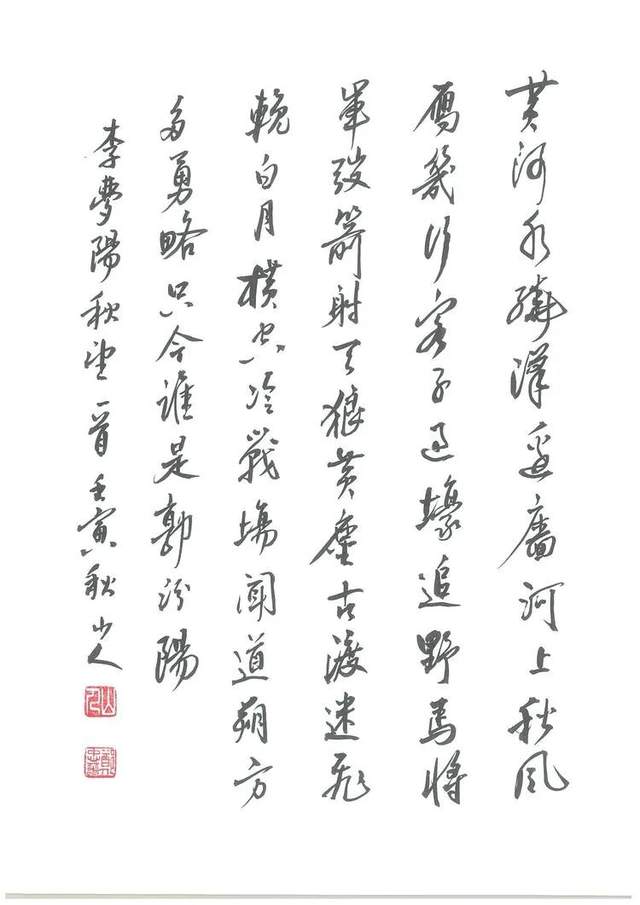 黄河水繞漢邊廧河上秋風
鴈幾行客子過壕追野馬將
軍弢箭射天狼黄塵古渡迷飛
輓白月橫空冷戰場聞道朔方
多勇略只今誰是郭汾陽
李夢陽秋望一首壬寅秋山人